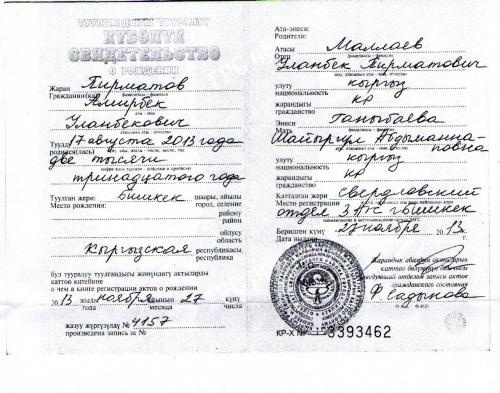 ТУУЛГАНДЫГЫ ТУУРАЛУУ
КҮБӨЛҮК
СВИДЕТЕЛЬСТВО
О РОЖДЕНИИ
Жаран
Гражданин(ка) Пирматов
Амирбек
Уланбекович
Туулду
родился(лась) 17 августа 2013 года
две тысячи
тринадцатого года
Туулган жери:
Место рождения: Бишкек шаары, айылы
город, селение
району
район
облусу
область
Кыргызская республикасы,
республика
бул тууралуу туулгандыгы жөнүндөгү актыларды
каттоо китебине
о чем в книге регистрации актов о рождении
2013 жылы ноября айынын 27 күнү
года месяца числа
жазуу жүргүзүлдү №
произведена запись за № 4157
Ата-энеси:
Родители:
Атасы
Отец Маллаев
Уланбек Пирматович
улуту
национальность кыргыз
жарандыгы
гражданство КР
Энеси
Мать Ганыбаева
Майыргул Абдыманна-
повна
улуту
национальность кыргыз
жарандыгы
гражданство КР
Катталган жери
Место регистрации Свердловский
отдел ЗАГС г. Бишкек
Берилген күнү
Дата выдачи 27 ноября 2013 г.
Жарандык абалдын актыларын
каттоо бөлүмүнүн башчысы
Заведующий отделом записи актов
гражданского состояния
Ф. Садыкова
КР-Х № 3393462